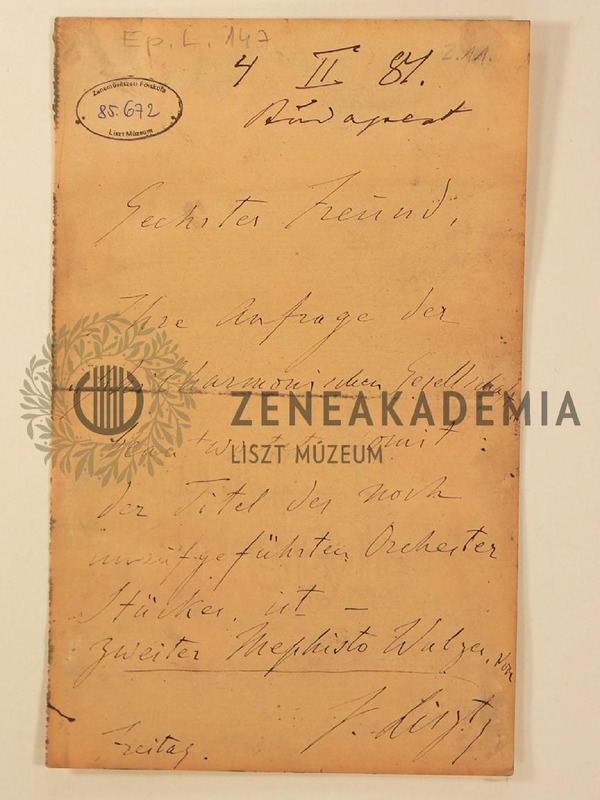 Ep. L. 147
Z.11.
4 II. 81.
Zeneművészeti Főiskola
85.672
LISZT MÚZEUM
Budapest
Geehrter Freund,
Ihre Anfrage der
Philharmonischen Gesellschaft
ZENEAKADEMIA
LISZT MÚZEUM
beantworte somit:
der Titel des noch
unaufgeführten Orchester
Stückes, ist —
Zweiter Mephisto Walzer, von
F. Liszt
Freitag.